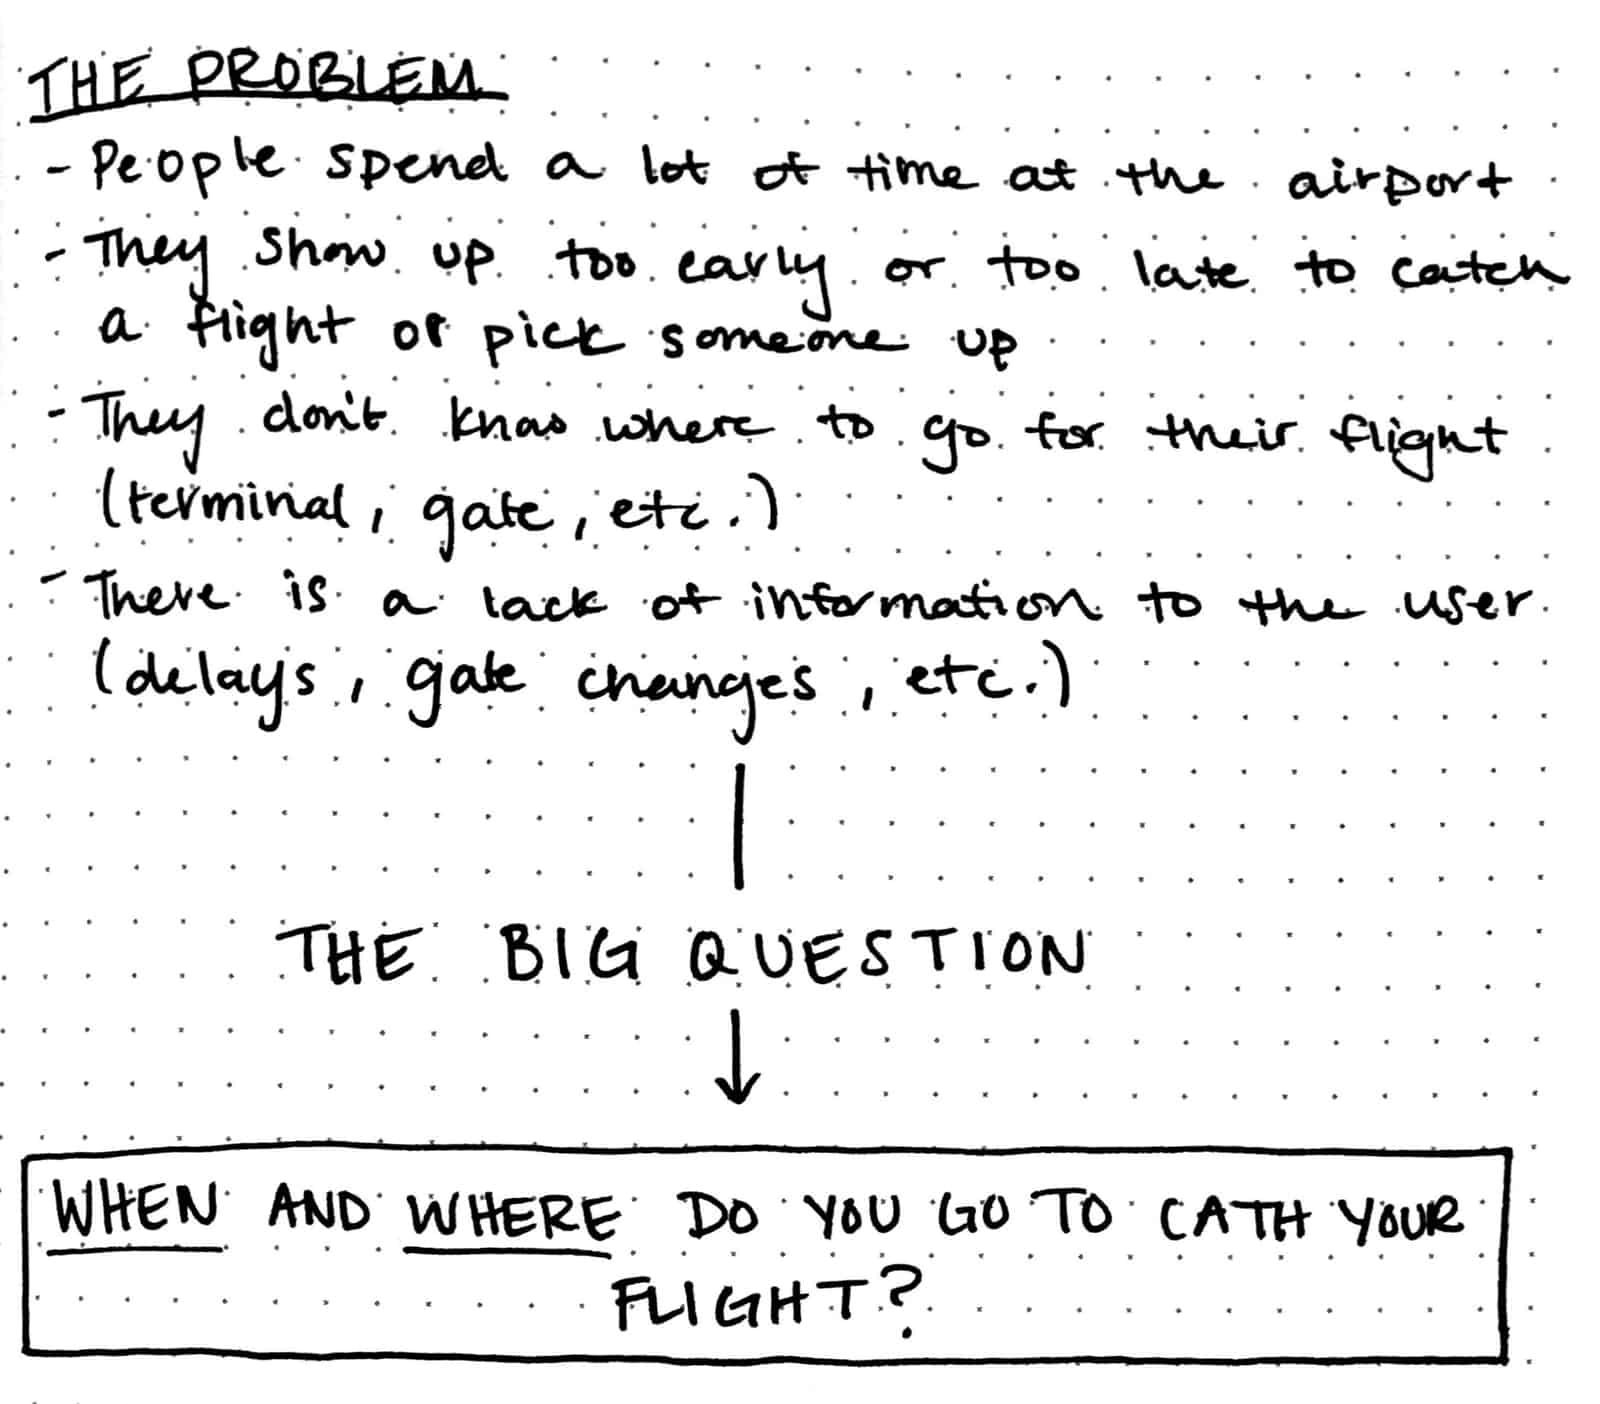 THE PROBLEM
- People spend a lot of time at the airport
- They show up too early or too late to catch
a flight or pick someone up
- They don't know where to go for their flight
(terminal, gate, etc.)
- There is a lack of information to the user
(delays, gate changes, etc.)
THE BIG QUESTION
WHEN AND WHERE DO YOU GO TO CATH YOUR
FLIGHT?